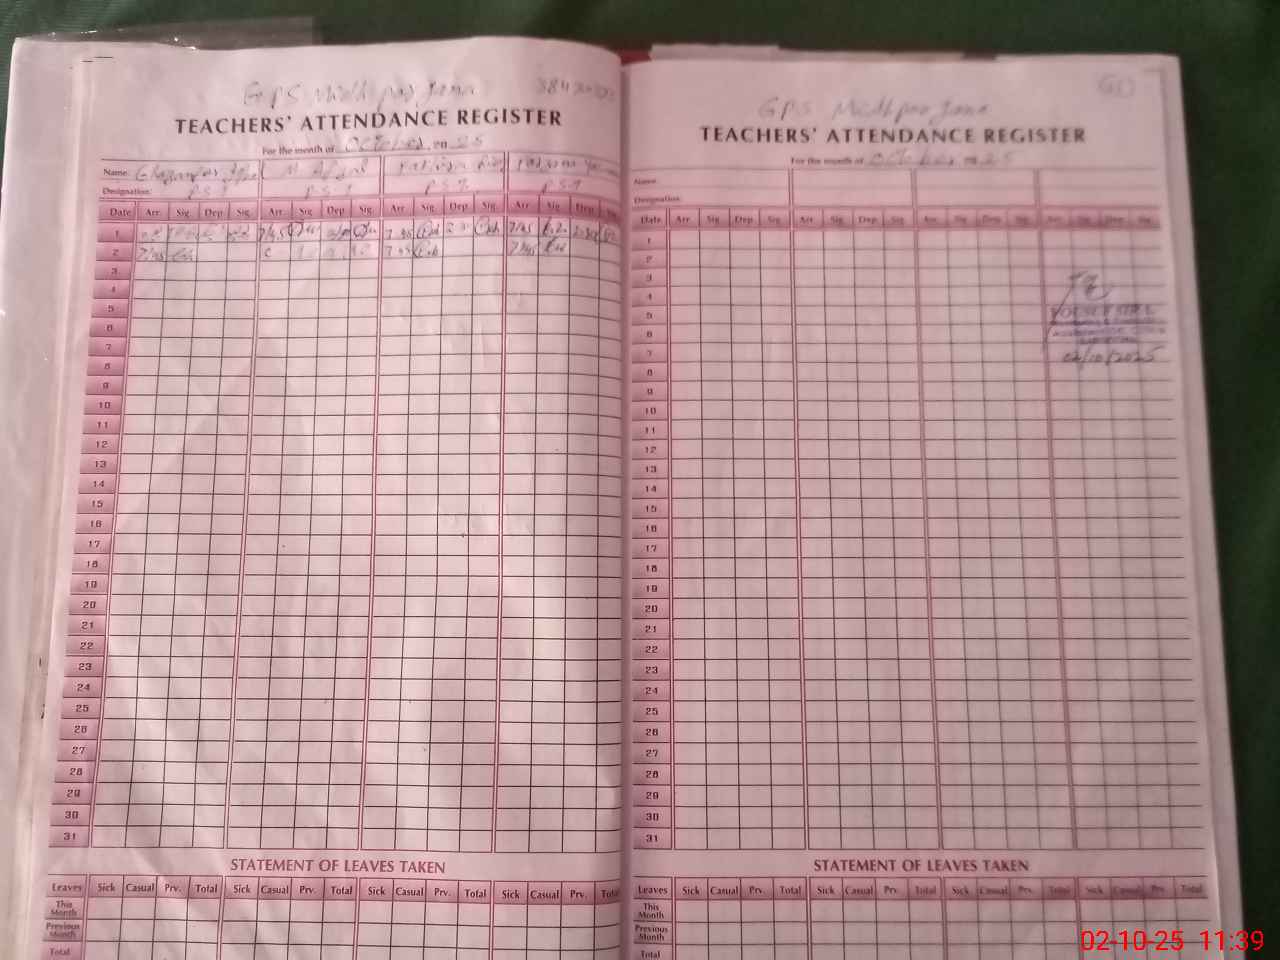 GPS
TEACHERS' ATTENDANCE REGISTER
For the month of October, on 25
Name: M Afzal
Designation: P.S.T P.S.T P.S.T P.S.T
Date Arr. Sig. Dep Sig. Arr. Sig. Dep Sig. Arr Sig. Dep Sig. Arr Sig. Dep
1 7/45 7.45 7/45
2 7/45 7.45 7/45
3
4
5
6
7
8
9
10
11
12
13
14
15
16
17
18
19
20
21
22
23
24
25
26
27
28
29
30
31
STATEMENT OF LEAVES TAKEN
Leaves Sick Casual Prv. Total Sick Casual Prv. Total Sick Casual Prv. Total Sick Casual Prv. Total
This Month
Previous Month
Total
GPS
TEACHERS' ATTENDANCE REGISTER
For the month of October on 25
Name:
Designation:
Date Arr. Sig. Dep Sig. Arr Sig. Dep Sig. Arr Sig. Dep Sig. Arr Sig. Dep Sig.
1
2
3
4
5
6
7
8
9
10
11
12
13
14
15
16
17
18
19
20
21
22
23
24
25
26
27
28
29
30
31
02/10/2025
STATEMENT OF LEAVES TAKEN
Leaves Sick Casual Prv. Total Sick Casual Prv. Total Sick Casual Prv. Total Sick Casual Prv. Total
This Month
Previous Month
Total
02-10-25 11:39